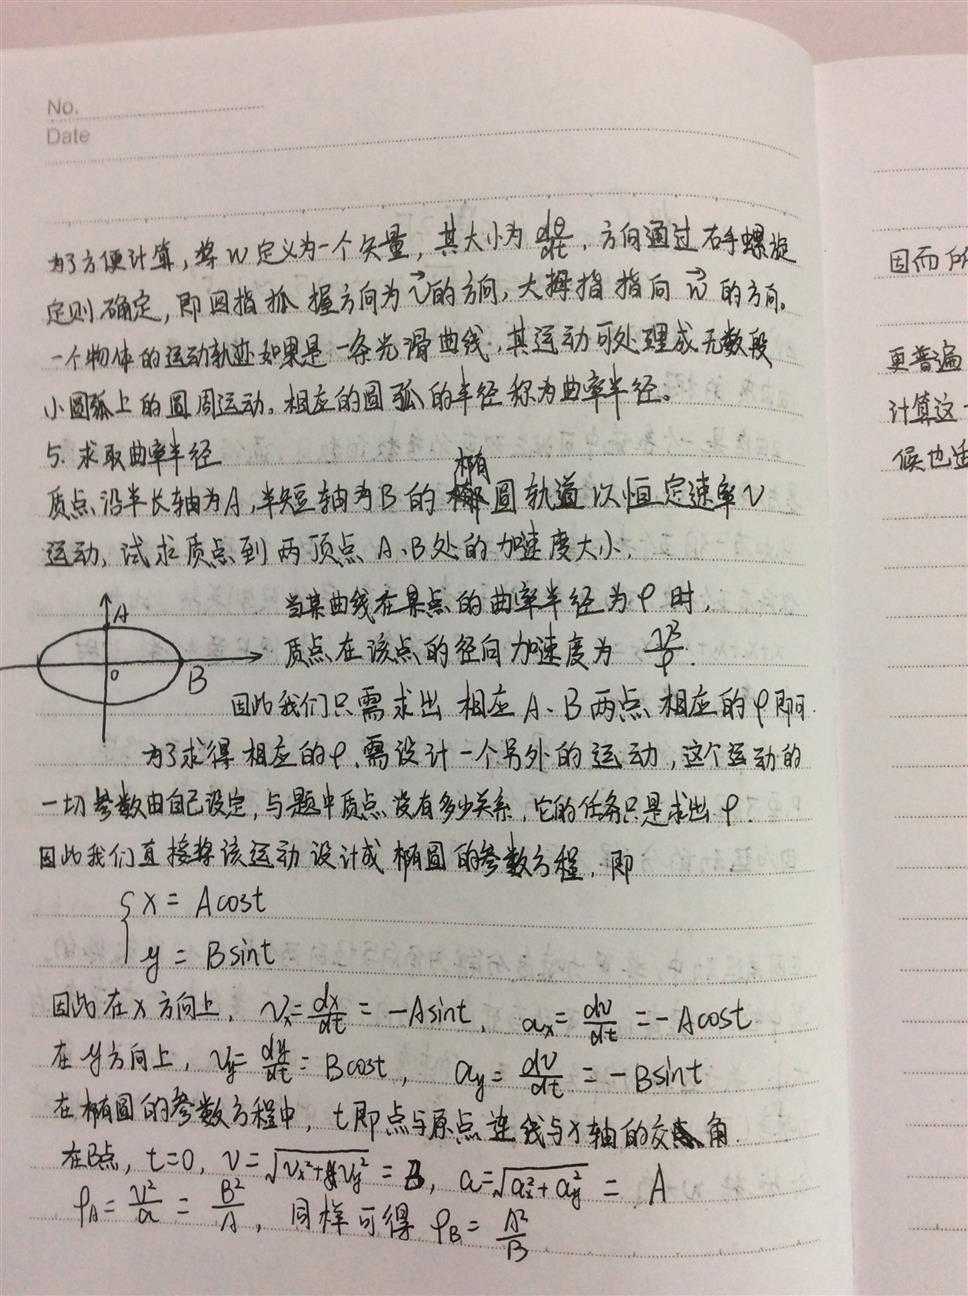 No.
Date
为了方便计算，将w定义为一个矢量，其大小为 dθ/dt，方向通过右手螺旋
定则确定，即四指抓握方向为v⃗的方向，大拇指指向w⃗的方向。
一个物体的运动轨迹如果是一条光滑曲线，其运动可处理成无数段
小圆弧上的圆周运动。相应的圆弧的半径称为曲率半径。
5. 求取曲率半径
质点沿半长轴为A，半短轴为B的椭圆轨道以恒定速率v
运动，试求质点到两顶点A、B处的加速度大小.
A
O
B
当某曲线在某点的曲率半径为ρ时，
质点在该点的径向加速度为 v²/ρ.
因此我们只需求出相应A、B两点相应的ρ即可.
为了求得相应的ρ，需设计一个另外的运动，这个运动的
一切参数由自己设定，与题中质点没有多少关系，它的任务只是求出ρ.
因此我们直接将该运动设计成椭圆的参数方程，即
{ x = Acost
y = Bsint
因此在x方向上，vx = dx/dt = -Asint, ax = dv/dt = -Acost
在y方向上，vy = dy/dt = Bcost, ay = dv/dt = -Bsint
在椭圆的参数方程中，t即点与原点连线与x轴的交角.
在B点，t=0, v=√(vx²+vy²) = B, a=√(ax²+ay²) = A
ρA = v²/a = B²/A，同样可得 ρB = A²/B
因而所
更普遍
计算这一
候也适